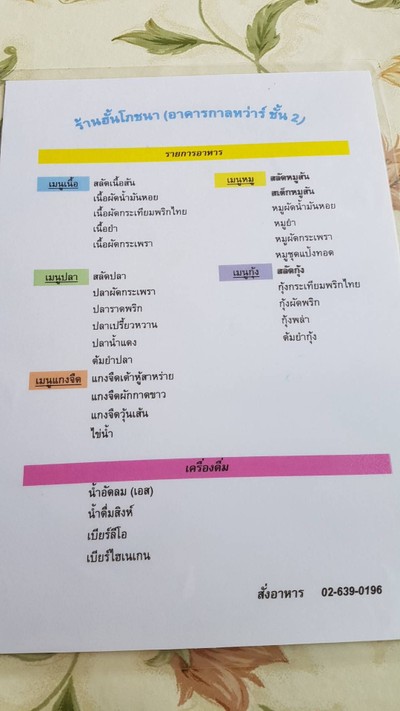 ร้านฮั้นโภชนา (อาคารกาลหว่าร์ ชั้น 2)
รายการอาหาร
เมนูเนื้อ
สลัดเนื้อสัน
เนื้อผัดน้ำมันหอย
เนื้อผัดกระเทียมพริกไทย
เนื้อยำ
เนื้อผัดกระเพรา
เมนูหมู
สลัดหมูสัน
สเต็กหมูสัน
หมูผัดน้ำมันหอย
หมูยำ
หมูผัดกระเพรา
หมูชุดแป้งทอด
เมนูปลา
สลัดปลา
ปลาผัดกระเพรา
ปลาราดพริก
ปลาเปรี้ยวหวาน
ปลาน้ำแดง
ต้มยำปลา
เมนูกุ้ง
สลัดกุ้ง
กุ้งกระเทียมพริกไทย
กุ้งผัดพริก
กุ้งพล่า
ต้มยำกุ้ง
เมนูแกงจืด
แกงจืดเต้าหู้สาหร่าย
แกงจืดผักกาดขาว
แกงจืดวุ้นเส้น
ไข่น้ำ
เครื่องดื่ม
น้ำอัดลม (เอส)
น้ำดื่มสิงห์
เบียร์ลีโอ
เบียร์ไฮเนเกน
สั่งอาหาร 02-639-0196